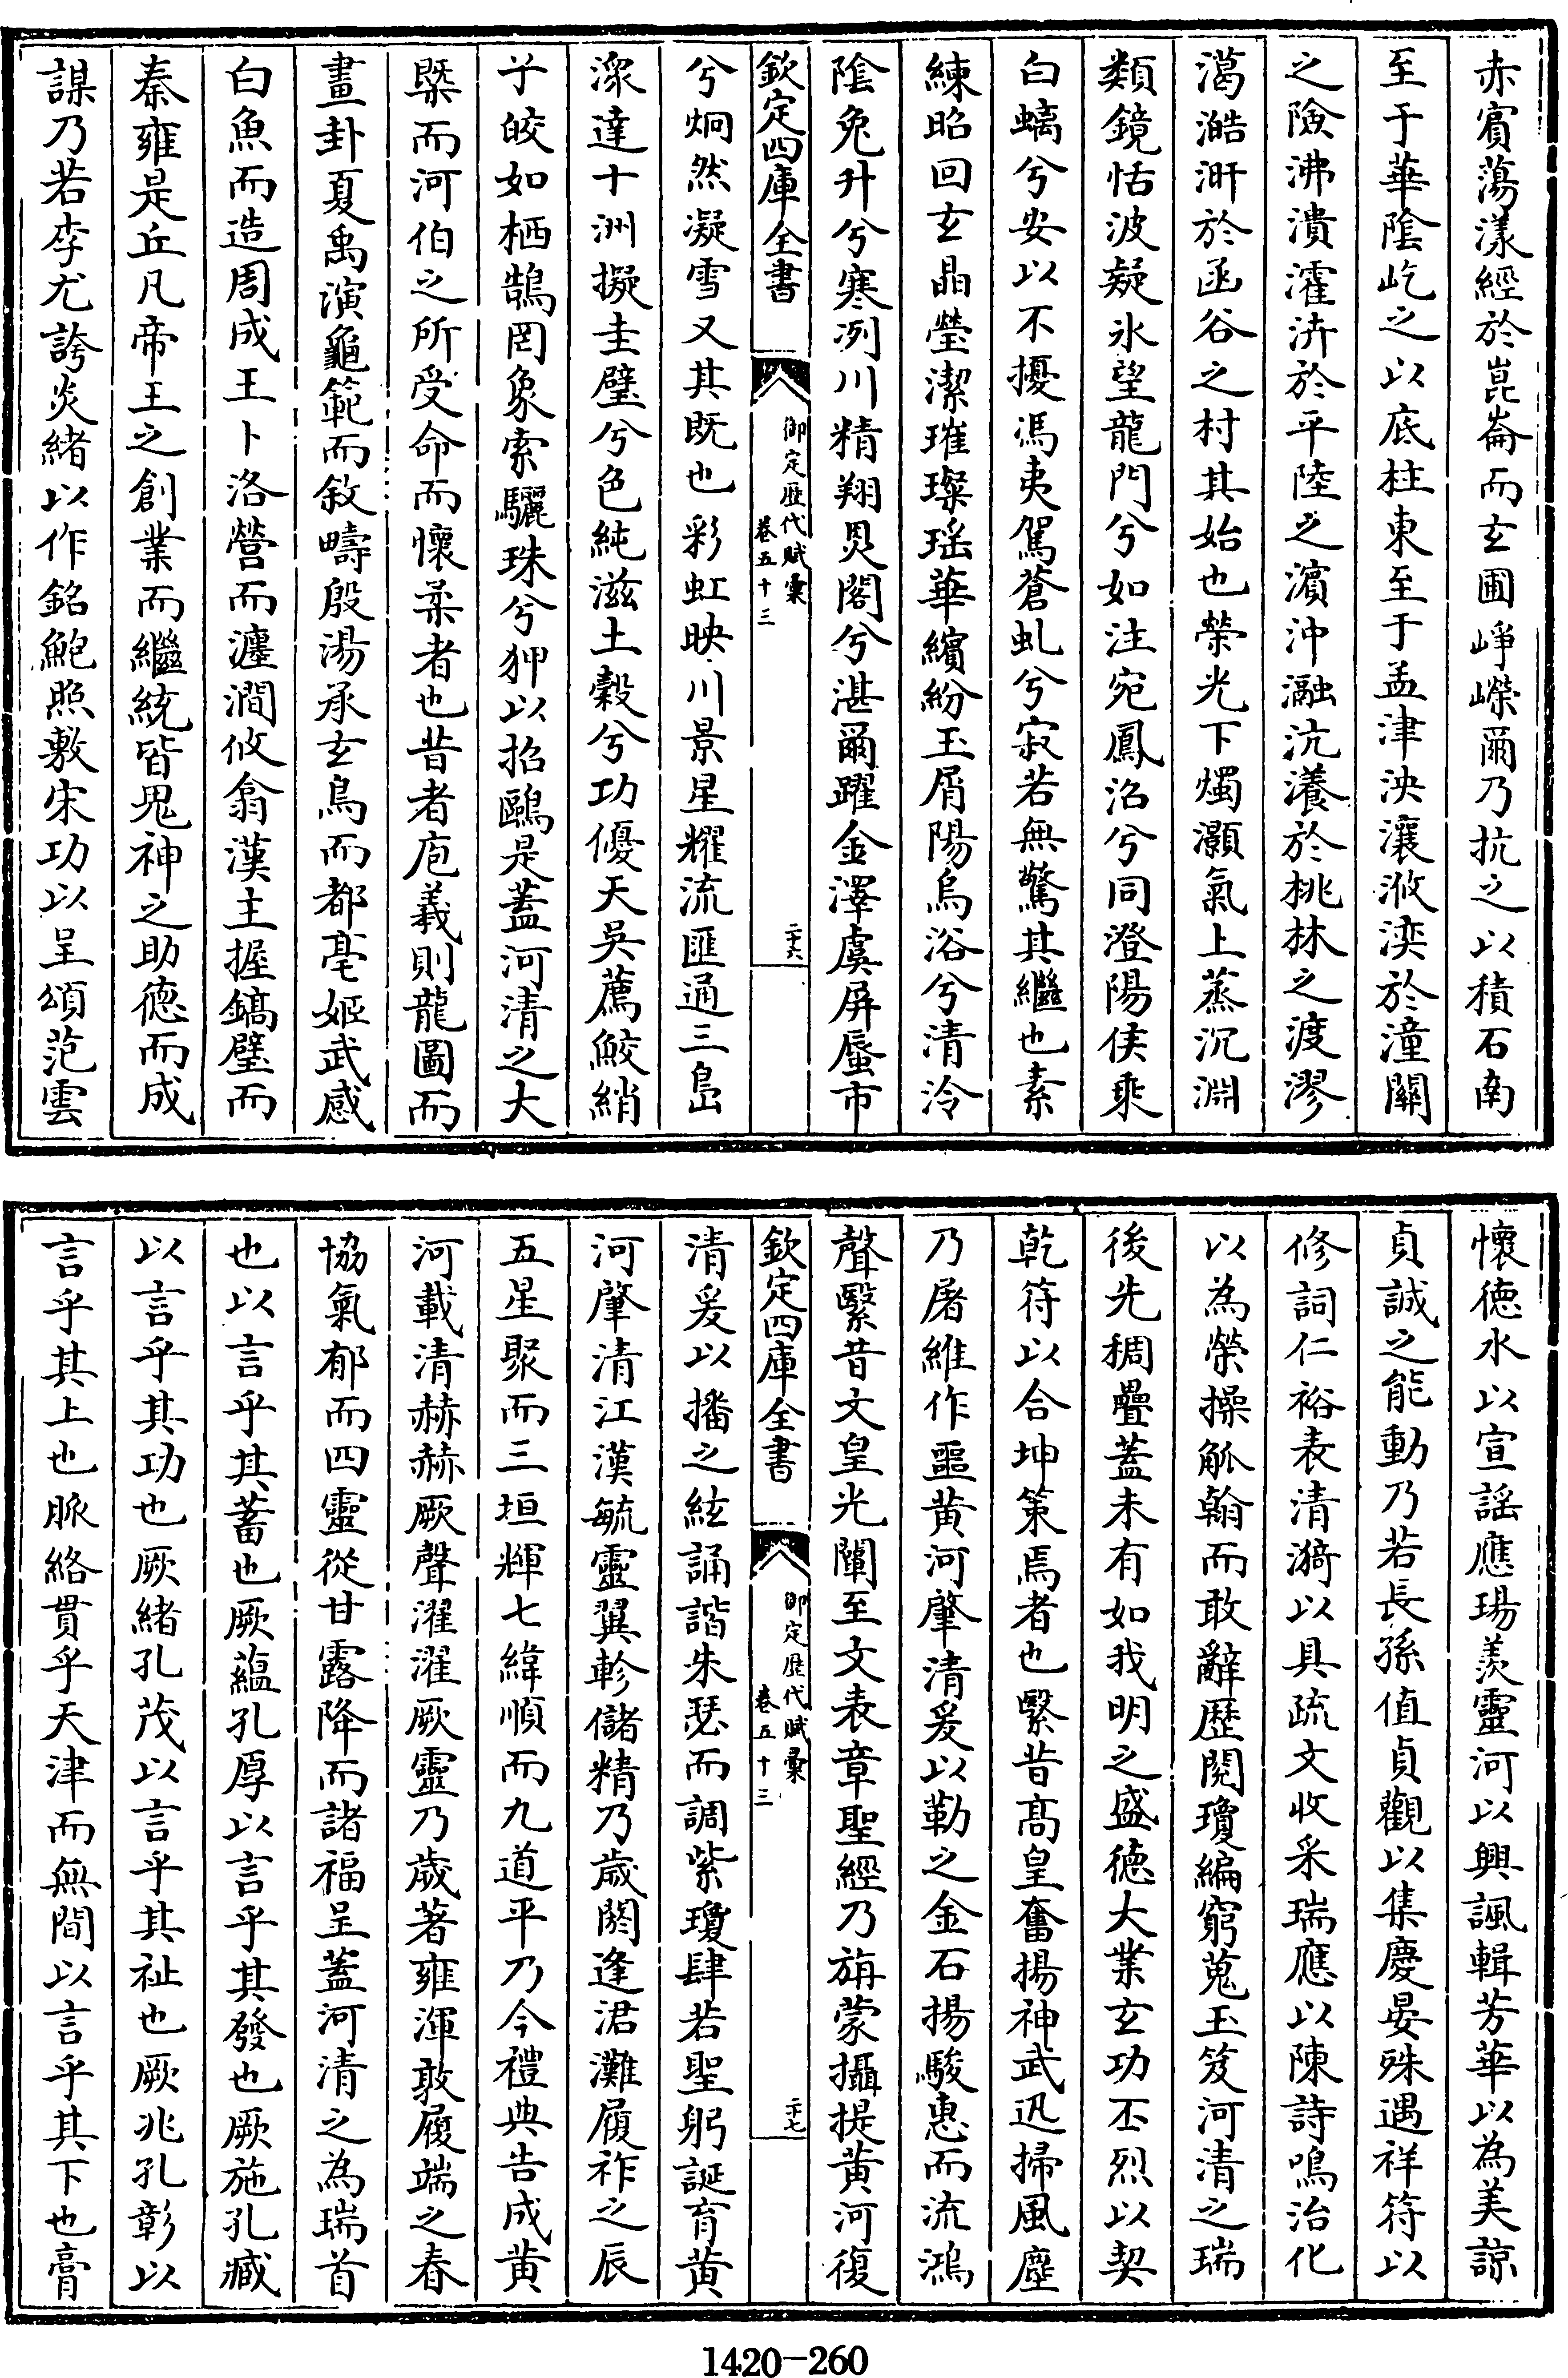 赤賔蕩漾經於崑崙而玄圃崢嶸爾乃抗之以積石南
至于華陰屹之以底柱東至于孟津泱瀼滺湙於潼關
之險沸潰㵧泋於平陸之濵沖瀜沆瀁於桃林之渡漻
㵧澔汧於函谷之村其始也榮光下燭灝氣上蒸沉淵
類鏡恬波凝氷望龍門兮如注宛鳳沼兮同澄陽侯乘
白螭兮安以不擾馮夷駕蒼虬兮寂若無驚其繼也素
練昭回玄晶瑩潔璀璨瑶華繽紛玉屑陽烏浴兮清泠
陰兔升兮寒冽川精翔貝閣兮湛爾躍金澤虞屏蜃市
欽定四庫全書
御定歴代賦彚
卷五十三
二十六
兮炯然凝雪又其既也彩虹映川景星耀流匯通三島
潨達十洲擬圭璧兮色純滋土穀兮功優天吳薦鮫綃
兮皎如栖鵠罔象索驪珠兮狎以招鷗是蓋河清之大
槩而河伯之所受命而懷柔者也昔者庖羲則龍圖而
畫卦夏禹演龜範而敘疇殷湯承玄鳥而都亳姬武感
白魚而造周成王卜洛營而瀍澗攸翕漢主握鎬璧而
秦雍是丘凡帝王之創業而繼統皆鬼神之助德而成
謀乃若李尤誇炎緒以作銘鮑照敷宋功以呈頌范雲
懷德水以宣謡應瑒羨靈河以興諷輯芳華以為美諒
貞誠之能動乃若長孫值貞觀以集慶晏殊遇祥符以
修詞仁裕表清漪以具疏文收采瑞應以陳詩鳴治化
以為榮操觚翰而敢辭歴閱瓊編窮蒐玉笈河清之瑞
後先稠疊蓋未有如我明之盛德大業玄功丕烈以契
乾符以合坤策焉者也緊昔髙皇奮揚神武迅掃風塵
乃屠維作噩黄河肇清爰以勒之金石揚駿惠而流鴻
聲緊昔文皇光闡至文表章聖經乃旃蒙攝提黄河復
欽定四庫全書
御定歴代賦彚
卷五十三
二十七
清爰以播之絃誦諧朱瑟而調紫瓊肆若聖躬誕育黄
河肇清江漢毓靈翼軫儲精乃歳閼逢涒灘履祚之辰
五星聚而三垣輝七緯順而九道平乃今禮典告成黄
河載清赫赫厥聲濯濯厥靈乃歳著雍渾敦履端之春
協氣郁而四靈從甘露降而諸福呈蓋河清之為瑞首
也以言乎其蓄也厥藴孔厚以言乎其發也厥施孔臧
以言乎其功也厥緒孔茂以言乎其祉也厥兆孔彰以
言乎其上也脈絡貫乎天津而無間以言乎其下也膏
1420-260